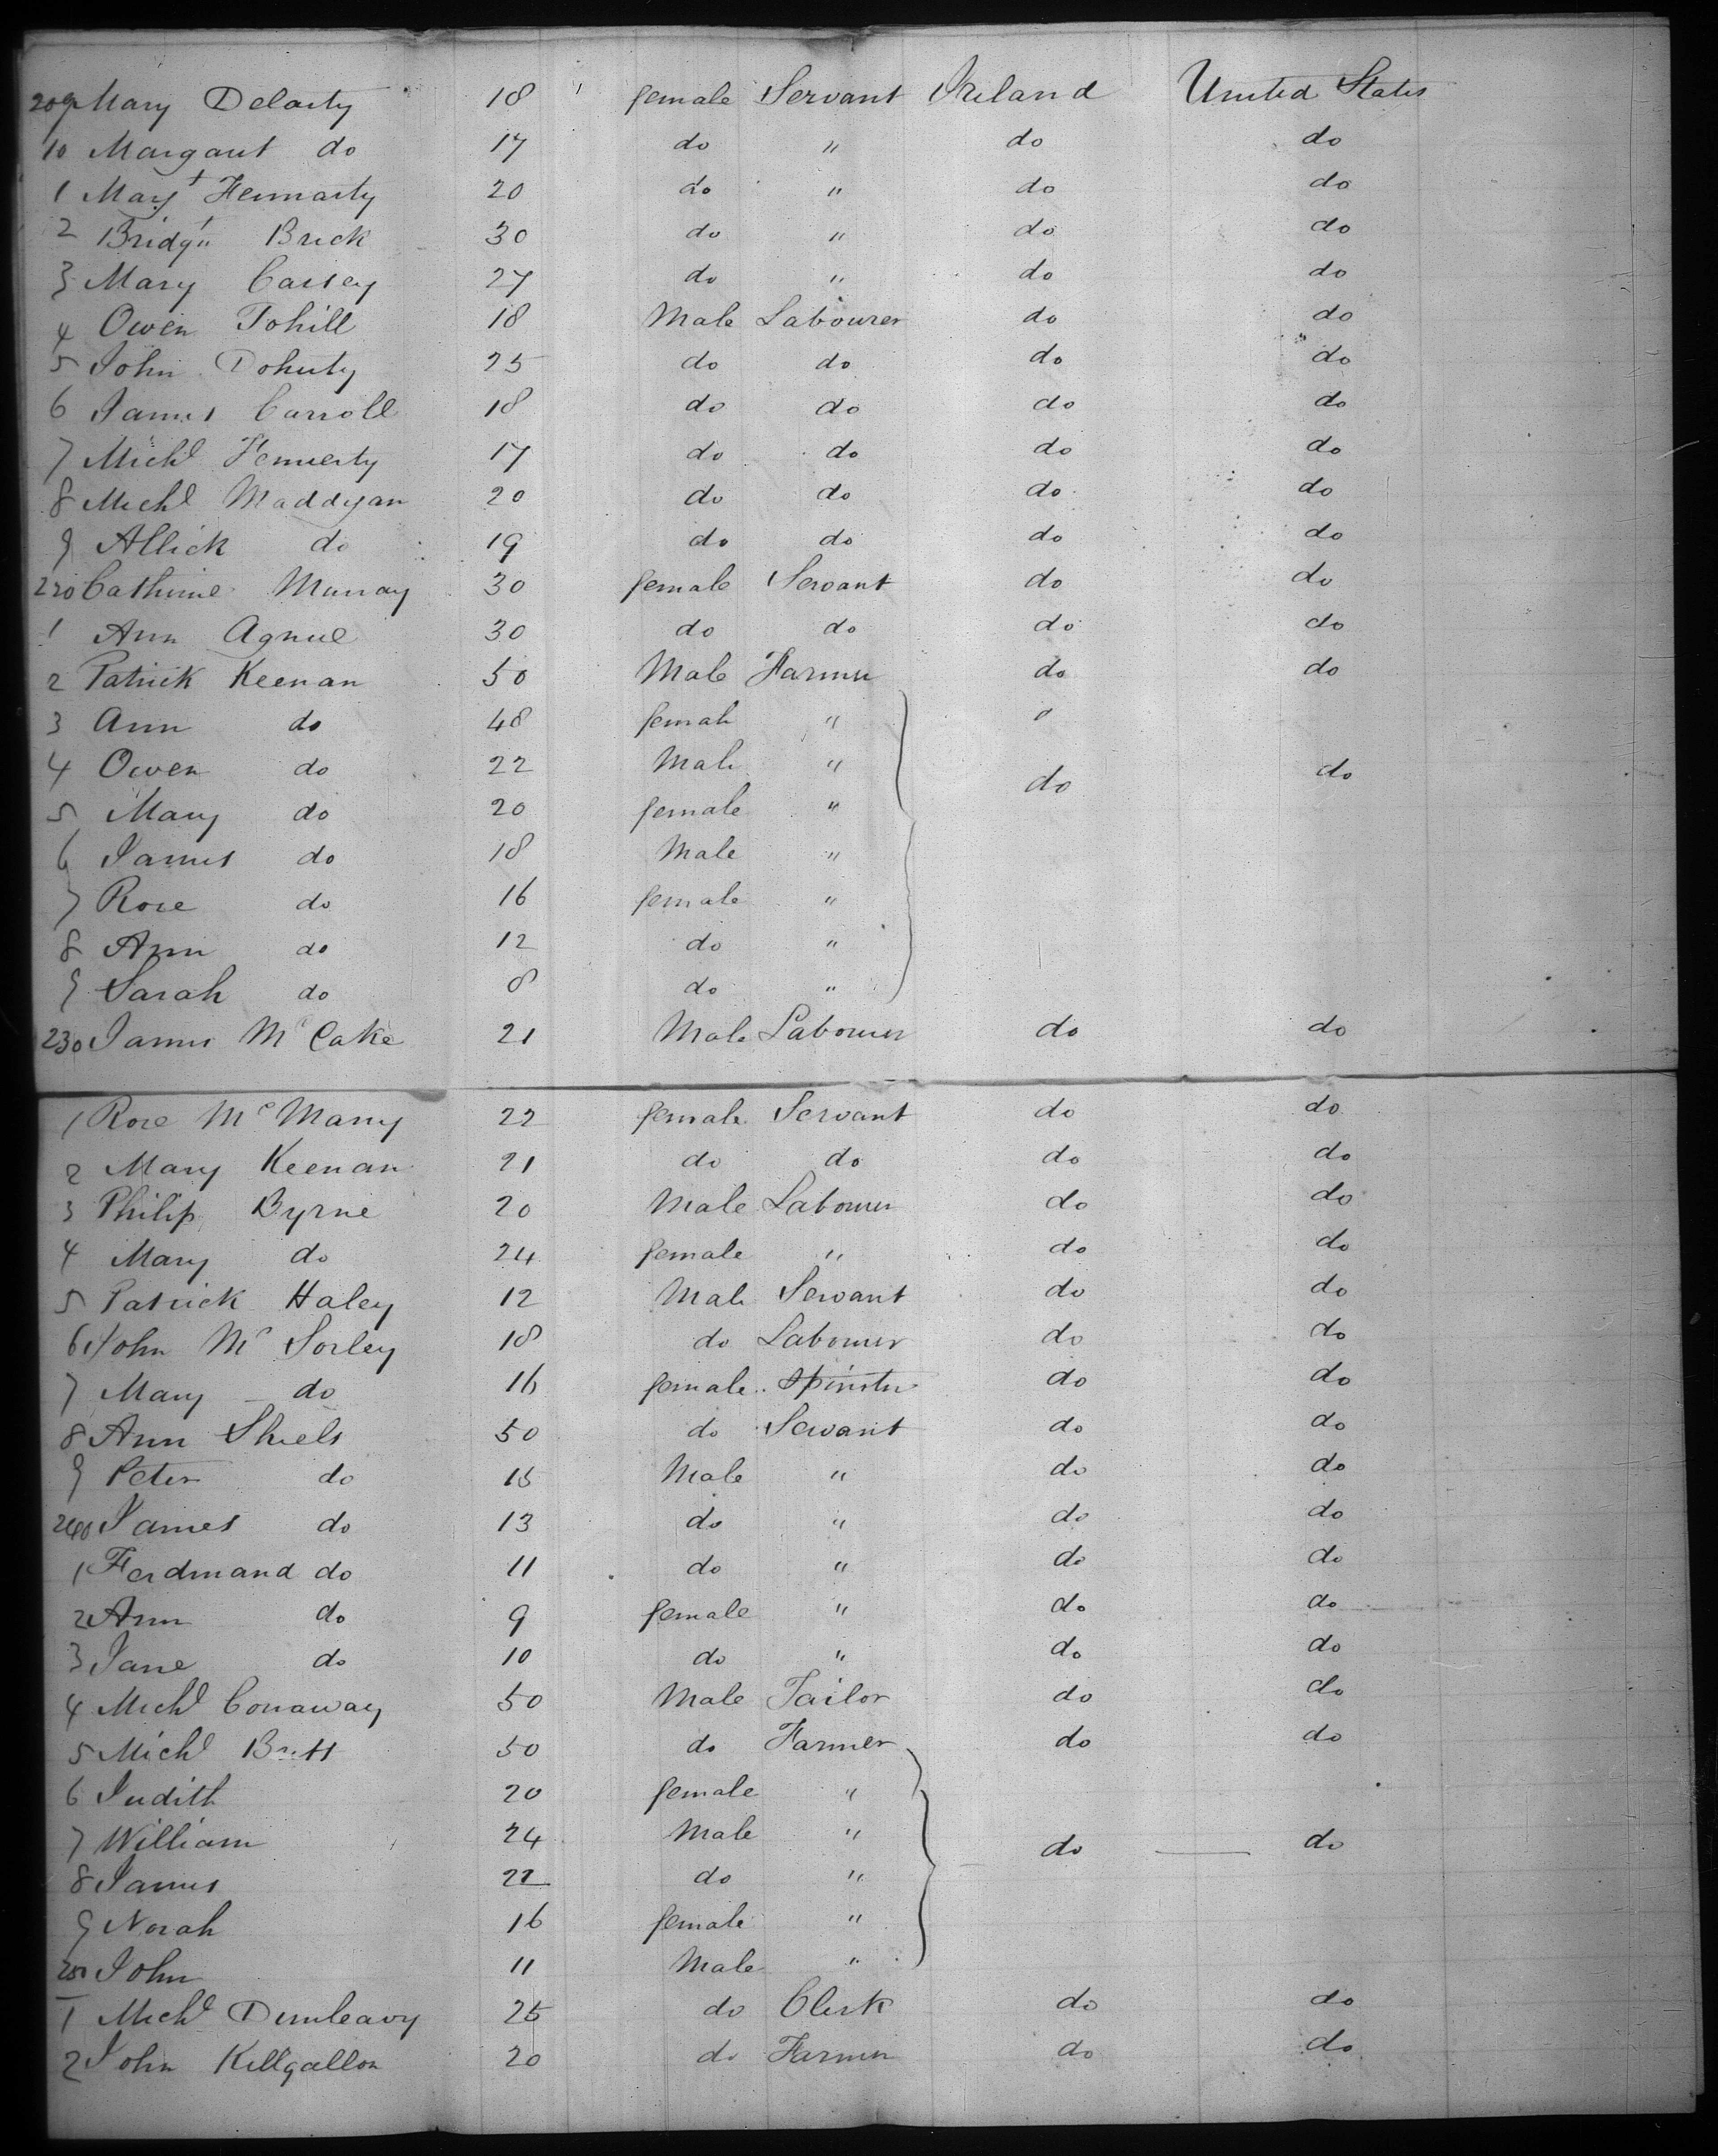 209 Mary Delarty 18 female Servant Ireland United States
10 Margaret do 17 do " do do
1 Mary Hennarty 20 do " do do
2 Bridgt Brick 30 do " do do
3 Mary Cassey 27 do " do do
4 Owen Tohill 18 Male Labourer do do
5 John Doherty 25 do do do do
6 James Carroll 18 do do do do
7 Michl Hennerty 17 do do do do
8 Michl Maddigan 20 do do do do
9 Allick do 19 do do do do
220 Catherine Murray 30 female Servant do do
1 Ann Agnue 30 do do do do
2 Patrick Keenan 50 Male Farmer do do
3 Ann do 48 female "
4 Owen do 22 Male " do do
5 Mary do 20 female "
6 James do 18 Male "
7 Rose do 16 female "
8 Ann do 12 do "
9 Sarah do 8 do "
230 James Mc Cake 21 Male Labourer do do
1 Rose Mc Many 22 female Servant do do
2 Mary Keenan 21 do do do do
3 Philip Byrne 20 Male Labourer do do
4 Mary do 24 female " do do
5 Patrick Haley 12 Male Servant do do
6 John Mc Sorley 18 do Labourer do do
7 Mary do 16 female Spinster do do
8 Ann Shiels 50 do Servant do do
9 Peter do 15 Male " do do
240 James do 13 do " do do
1 Ferdinand do 11 do " do do
2 Ann do 9 female " do do
3 Jane do 10 do " do do
4 Michl Conaway 50 Male Tailor do do
5 Michl 50 do Farmer do do
6 Judith 20 female "
7 William 24 Male " do do
8 James 22 do "
9 Norah 16 female "
250 John 11 Male "
1 Michl Dunleavy 25 do Clerk do do
2 John Killgallon 20 do Farmer do do